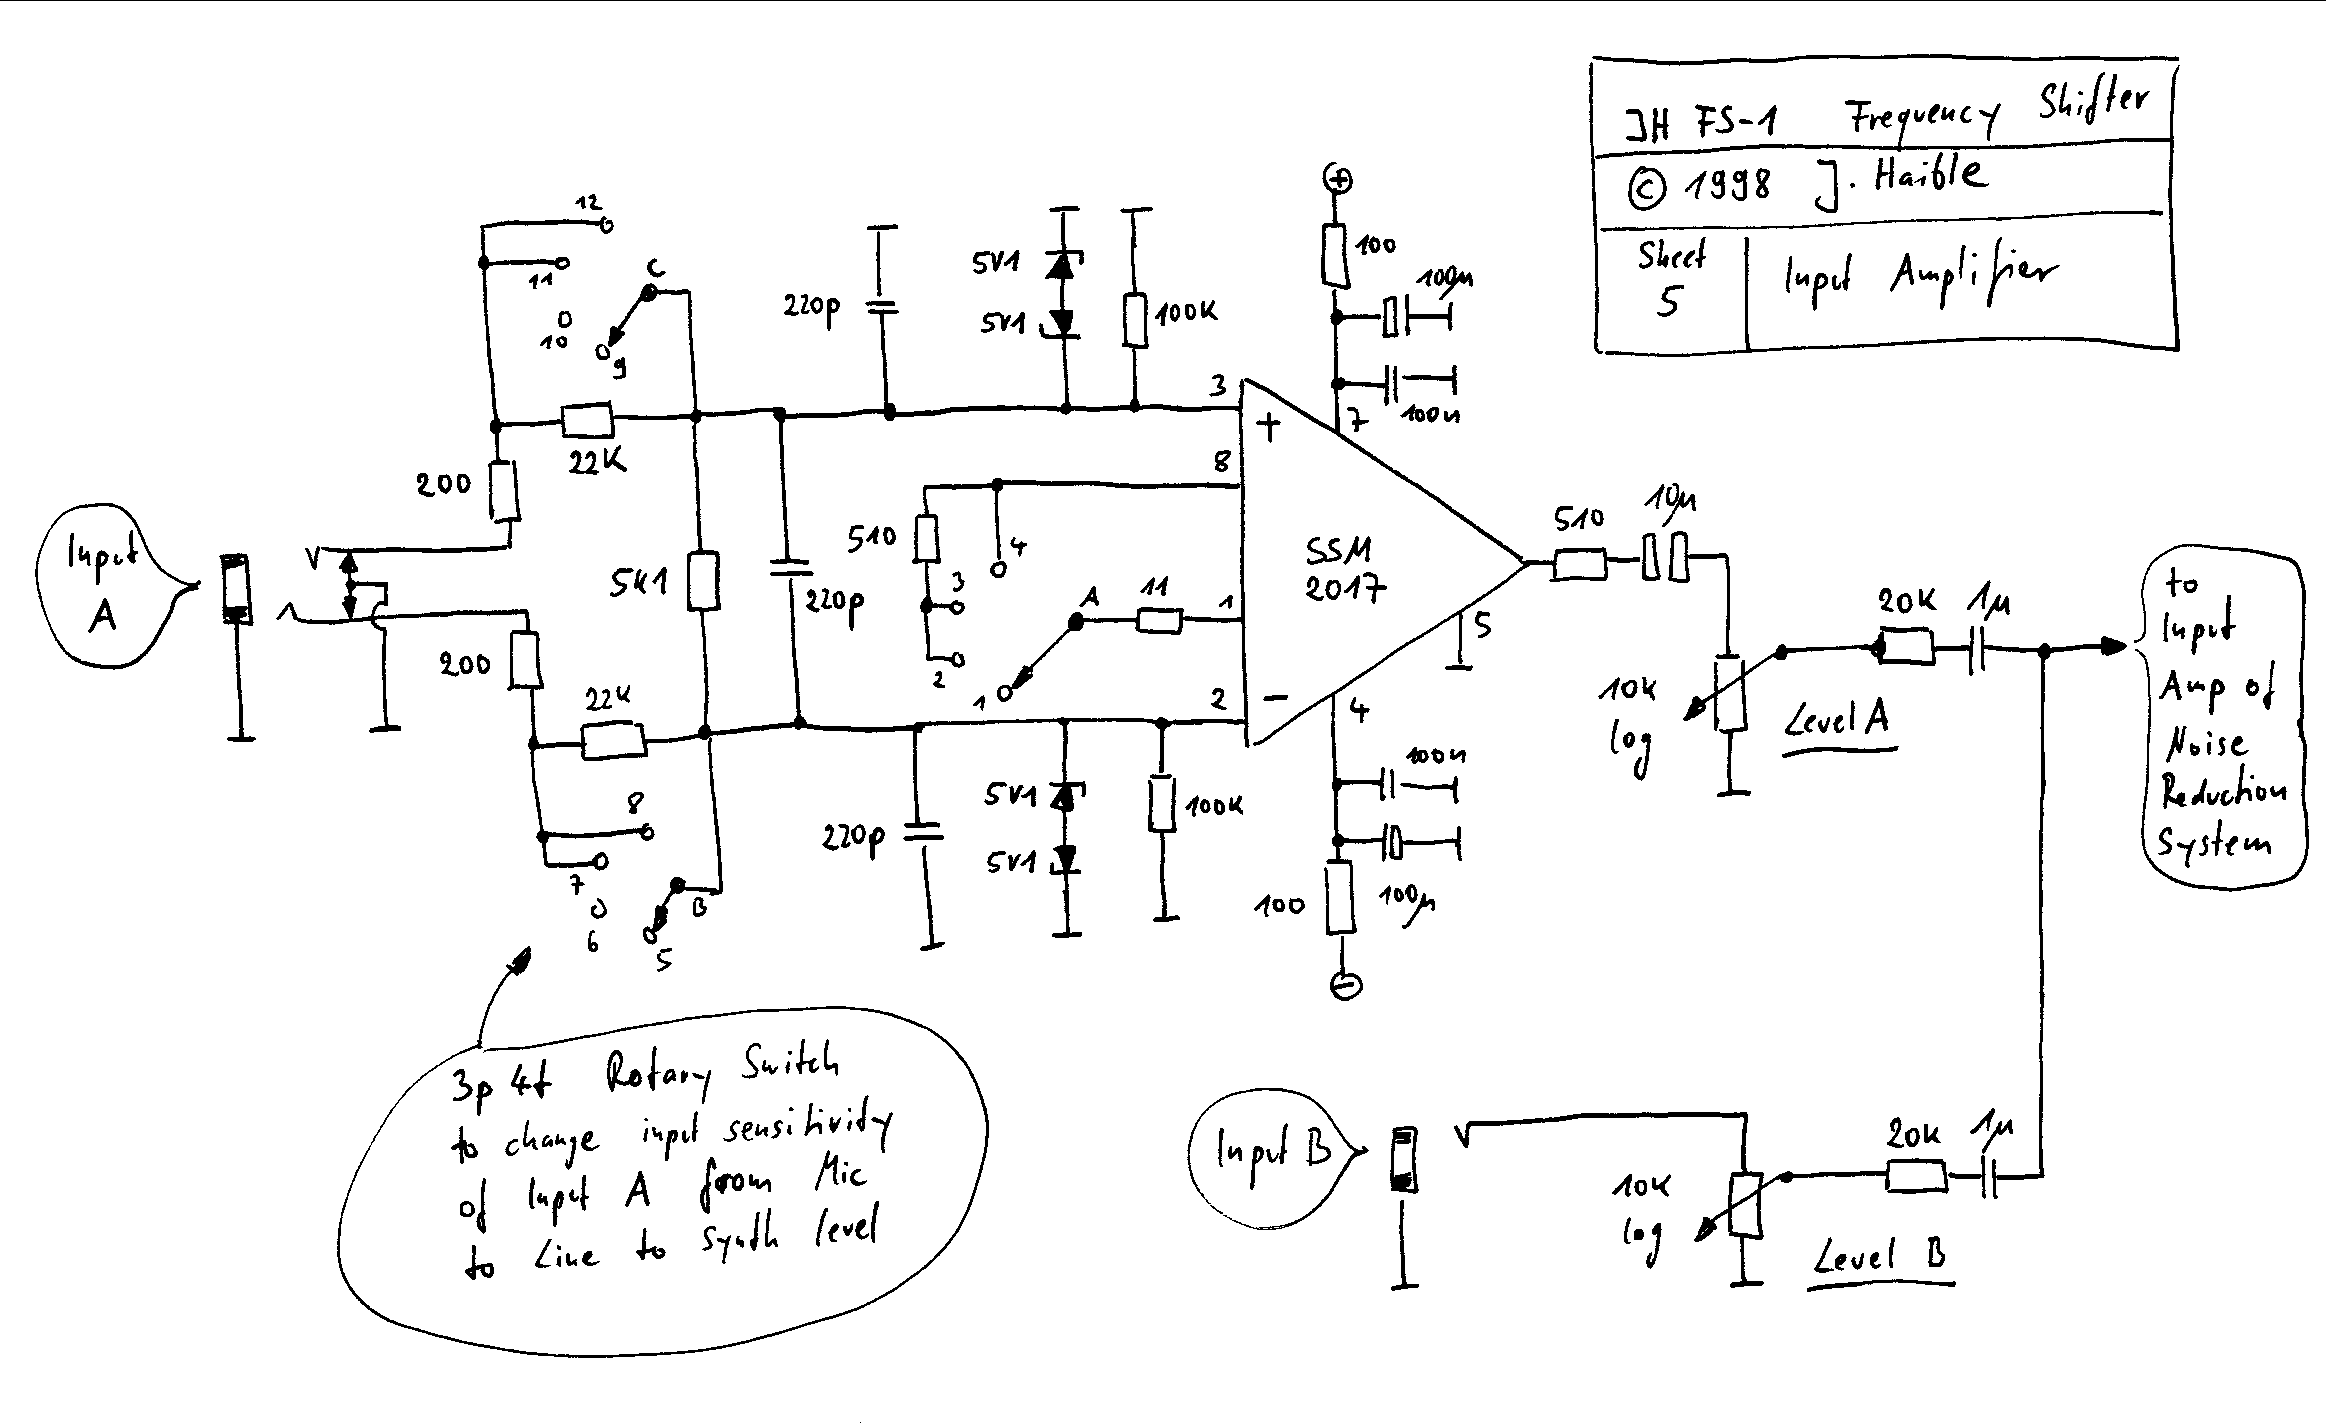 JH FS-1 Frequency Shifter
© 1998 J. Haible
Sheet
5
Input Amplifier
12
11
10
9
C
22K
200
Input
A
200
22K
8
7
6
5
B
5k1
220p
220p
5V1
5V1
100K
220p
5V1
5V1
100K
510
4
3
2
1
A
11
3
+
8
1
2
-
SSM
2017
7
5
4
+
100
100µ
100n
100n
100µ
100
-
510
10µ
10K
log
Level A
20K
1µ
to
Input
Amp of
Noise
Reduction
System
3p 4t Rotary Switch
to change input sensitivity
of Input A from Mic
to Line to Synth level
Input B
10K
log
Level B
20K
1µ